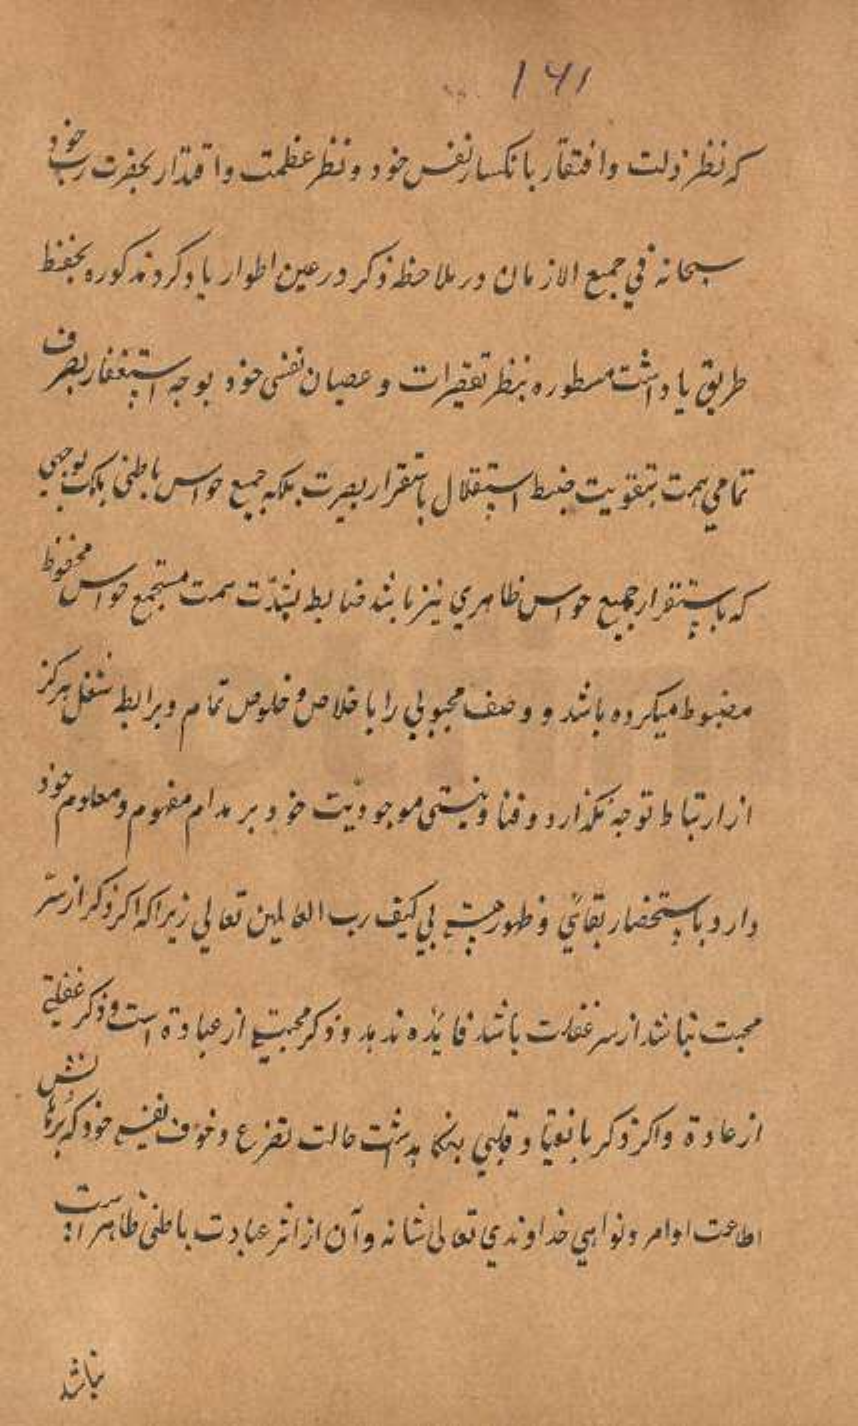 ۱۶۱
که نظر ذلت وافتقار بانکسار نفس خود و نظر عظمت واقتدار بحضرت رب خود
سبحانه في جمیع الازمان در ملاحظه ذکر در عین اطوار یادکرد مذکوره بحفظ
طریق یادداشت مسطوره بنظر تقصیرات و عصیان نفسی خود بوجه استغفار بصرف
تمامي همت بتقویت ضبط استقلال باستقرار بصیرت بلکه جمیع حواس باطنی بوجهي
که باستقرار جمیع حواس ظاهري نیز باشد ضابط بشدّت همت مستجمع حواس محفوظ
مضبوط میکرده باشد و وصف محبوبي را با خلاص و خلوص تمام وبرابطه شغل هرکز
از ارتباط توجه نکذارد و فنا و نیستی موجودیّت خود بر مدام مفهوم و معلوم خود
دارد باستحضار بقائي و ظهور بي کیف رب العالمین تعالي زیراکه اکر ذکر از سرّ
محبت نباشد از سر غفلت باشد فائده ندهد و ذکر محبتي از عبادة است و ذکر غفلتي
از عادة واکر ذکر با نفیا و قلبي بنکاهداشت حالت تضرع و خوف نفس خود که برهانش
اطاعت اوامر ونواهي خداوندي تعالی شانه و آن از اثر عبادت باطنی ظاهر است
نباشد